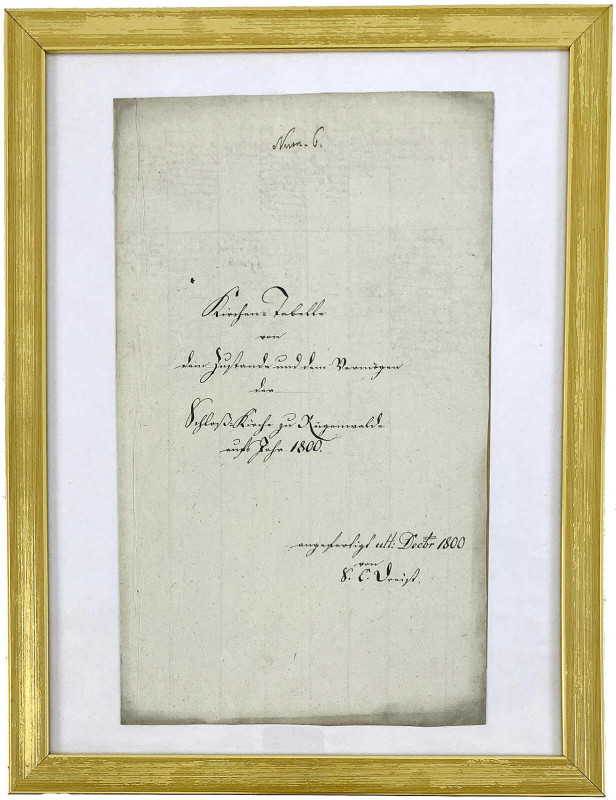 Num. 6.
Kirchen-Tabelle
von
dem Zustande und dem Vermögen
der
Schloß-Kirche zu Rügenwalde
aufs Jahr 1800.
angefertigt ult: Decbr 1800
von
S. C. Dreist.